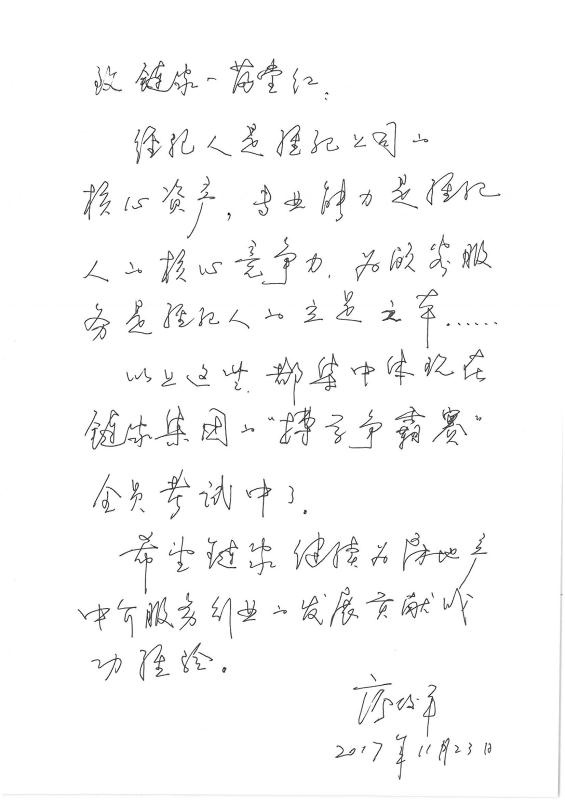 致链家一苗当红:
经纪人是经纪公司的
核心资产,专业能力是经纪
人的核心竞争力,为顾客服
务是经纪人的立足之本……
以上这些,都集中体现在
链家集团的“搏学争霸赛”
全员考试中了。
希望链家继续为房地产
中介服务行业的发展贡献成
功经验。
2017年11月23日